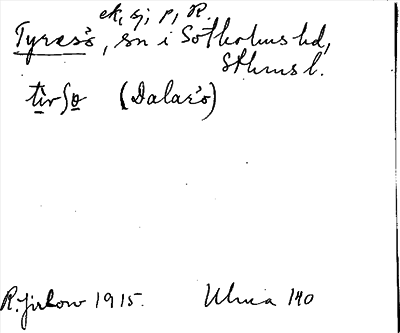 ek, sj, p, R.
Tyresö, sn i Sotholms hd,
Sthms l.
(Dalarö)
R. Jirlow 1915. Ulma 140